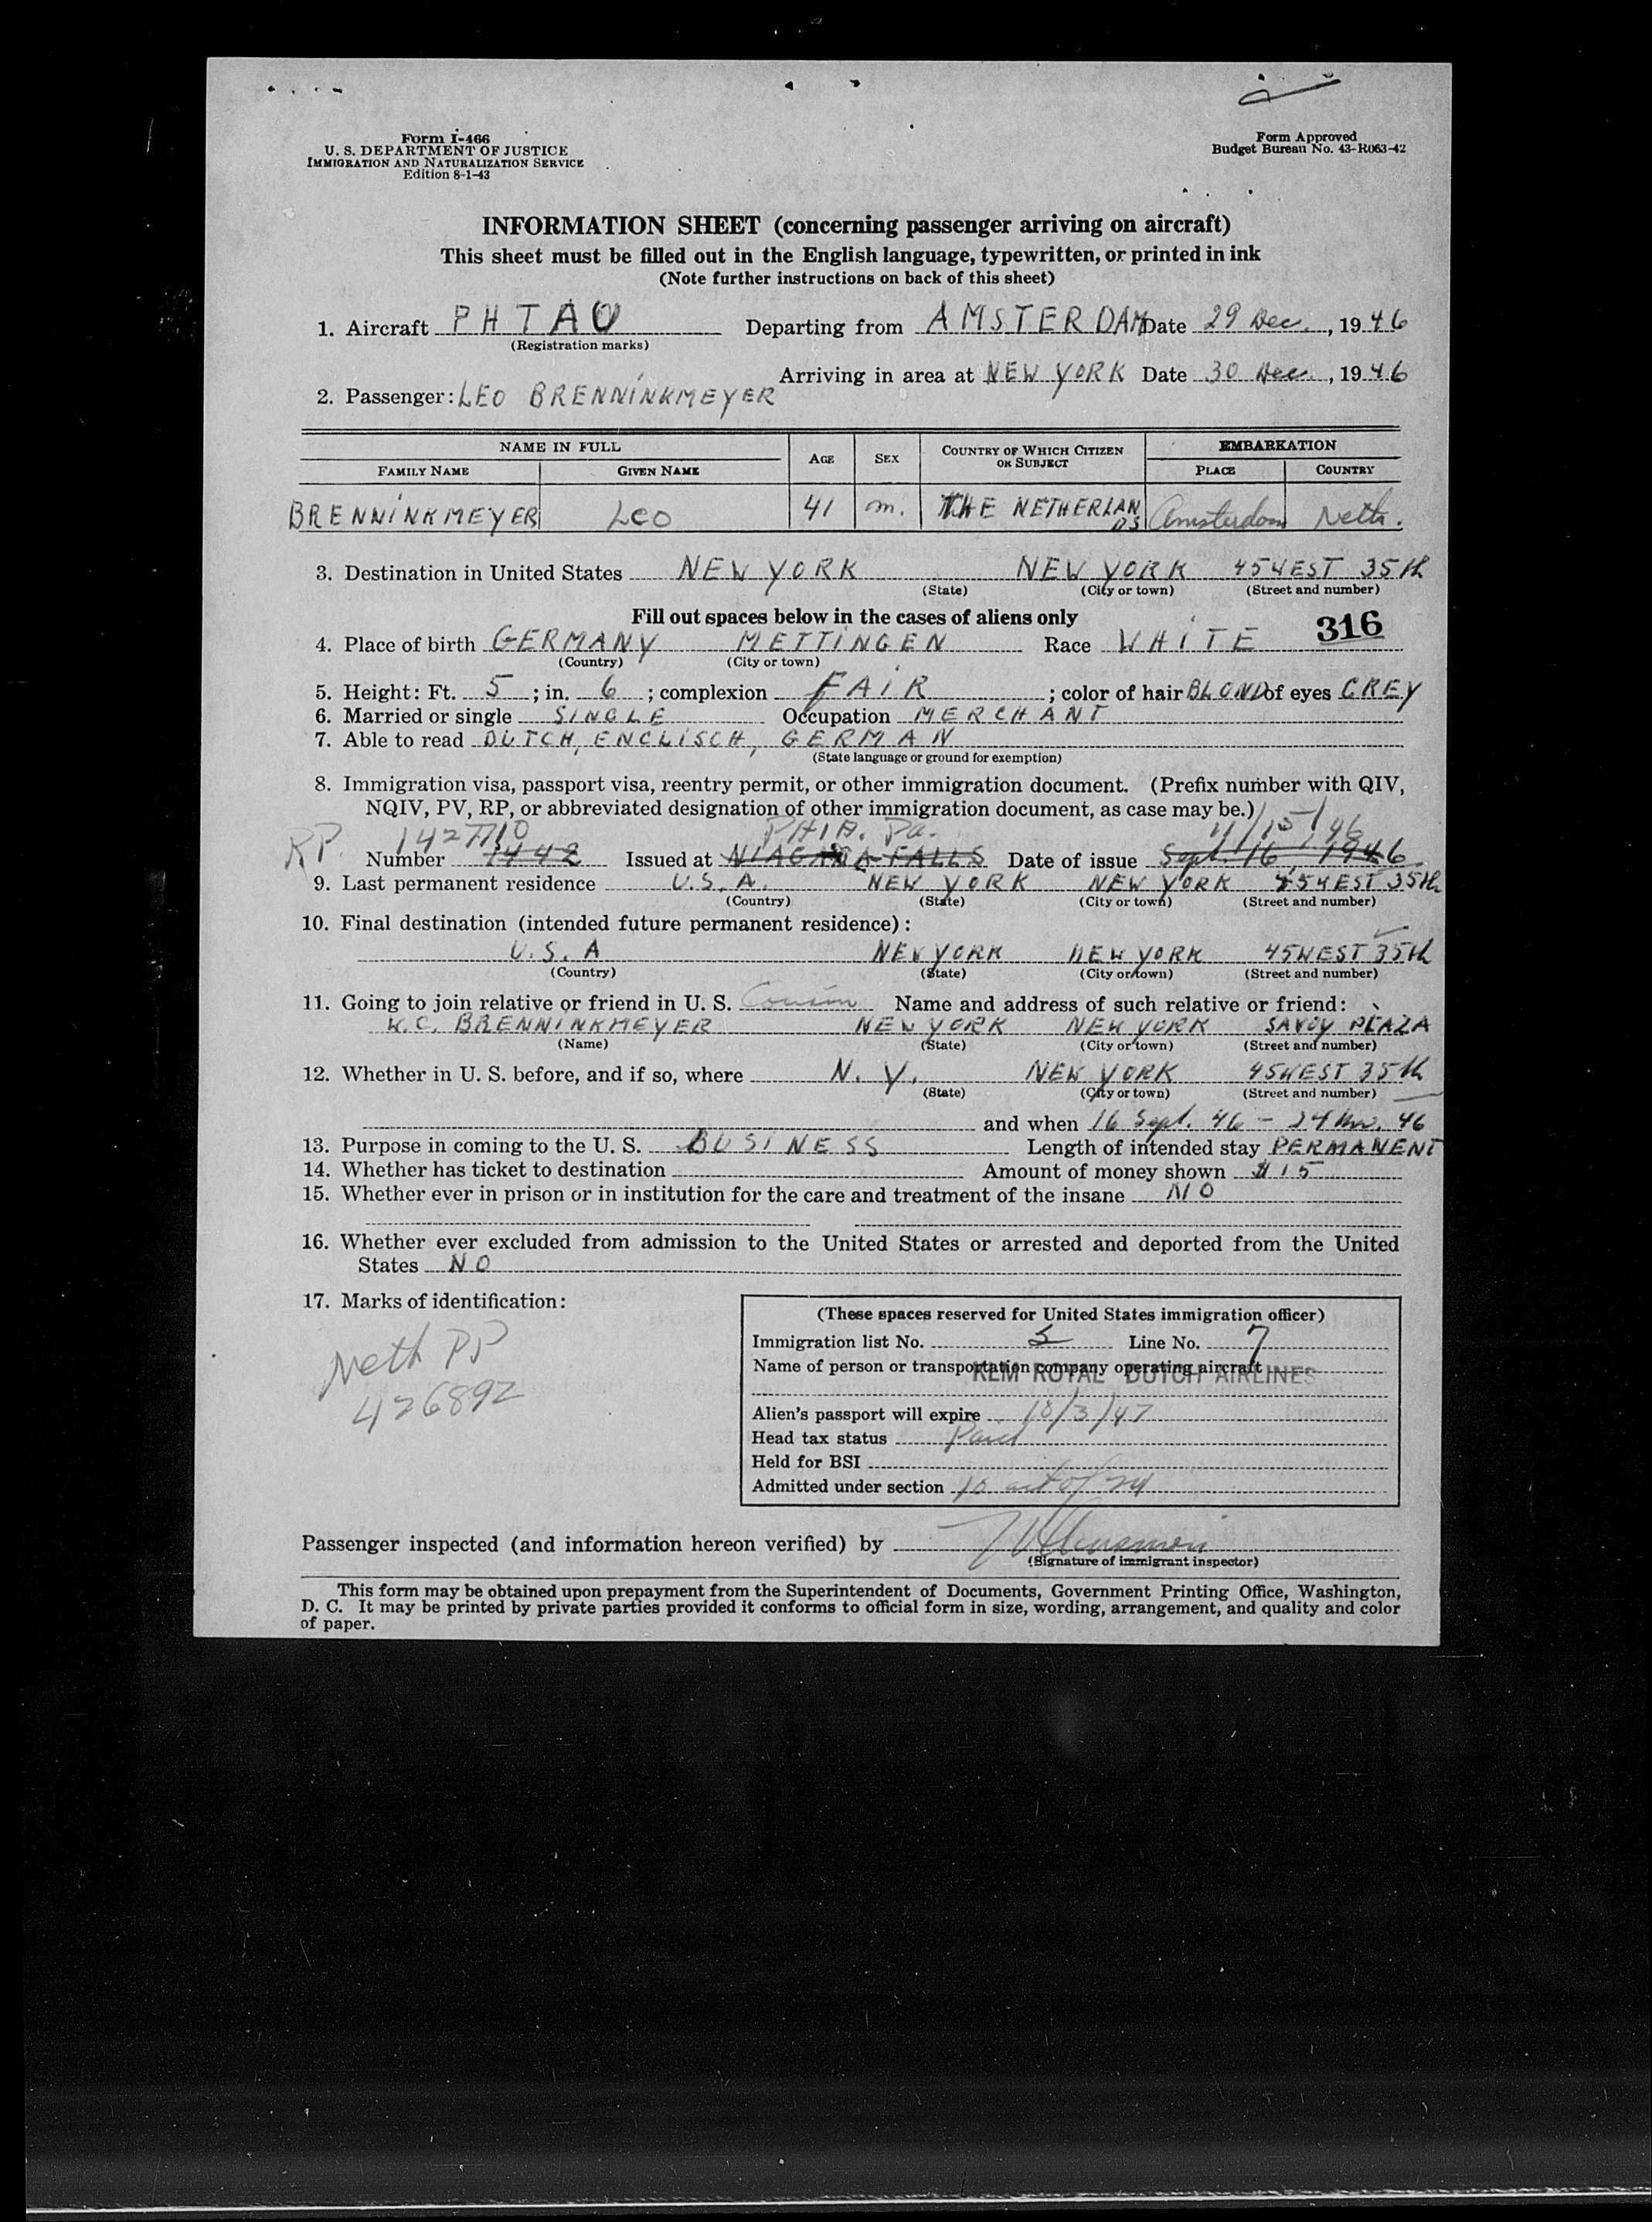 Form I-466
U. S. DEPARTMENT OF JUSTICE
IMMIGRATION AND NATURALIZATION SERVICE
Edition 8-1-43
Form Approved
Budget Bureau No. 43-R063-42
INFORMATION SHEET (concerning passenger arriving on aircraft)
This sheet must be filled out in the English language, typewritten, or printed in ink
(Note further instructions on back of this sheet)
1. Aircraft PH TAU Departing from AMSTERDAM Date 29 Dec. , 19 46
(Registration marks)
Arriving in area at NEW YORK Date 30 Dec. , 19 46
2. Passenger: LEO BRENNINKMEYER
NAME IN FULL AGE SEX COUNTRY OF WHICH CITIZEN OR SUBJECT EMBARKATION
FAMILY NAME GIVEN NAME PLACE COUNTRY
BRENNINKMEYER Leo 41 m. THE NETHERLANDS Amsterdam Neth.
3. Destination in United States NEW YORK NEW YORK 45 WEST 35th
(State) (City or town) (Street and number)
Fill out spaces below in the cases of aliens only
316
4. Place of birth GERMANY METTINGEN Race WHITE
(Country) (City or town)
5. Height: Ft. 5 ; in. 6 ; complexion FAIR ; color of hair BLOND of eyes GREY
6. Married or single SINGLE Occupation MERCHANT
7. Able to read DUTCH, ENGLISCH, GERMAN
(State language or ground for exemption)
8. Immigration visa, passport visa, reentry permit, or other immigration document. (Prefix number with QIV,
NQIV, PV, RP, or abbreviated designation of other immigration document, as case may be.)
RP. 1427710 PHIA. Pa. 11/15/46
Number 1442 Issued at NIAGARA FALLS Date of issue Sept. 16, 1946
9. Last permanent residence U.S.A. NEW YORK NEW YORK 45 WEST 35th
(Country) (State) (City or town) (Street and number)
10. Final destination (intended future permanent residence):
U.S.A NEW YORK NEW YORK 45 WEST 35th
(Country) (State) (City or town) (Street and number)
11. Going to join relative or friend in U. S. Cousin Name and address of such relative or friend:
W.C. BRENNINKMEYER NEW YORK NEW YORK SAVOY PLAZA
(Name) (State) (City or town) (Street and number)
12. Whether in U. S. before, and if so, where N. Y. NEW YORK 45 WEST 35th
(State) (City or town) (Street and number)
and when 16 Sept. 46 - 24 Nov. 46
13. Purpose in coming to the U. S. BUSINESS Length of intended stay PERMANENT
14. Whether has ticket to destination Amount of money shown $15
15. Whether ever in prison or in institution for the care and treatment of the insane NO
16. Whether ever excluded from admission to the United States or arrested and deported from the United
States NO
17. Marks of identification:
Neth PP
426892
(These spaces reserved for United States immigration officer)
Immigration list No. 5 Line No. 7
Name of person or transportation company operating aircraft
KLM ROYAL DUTCH AIRLINES
Alien's passport will expire 18/3/47
Head tax status Paid
Held for BSI
Admitted under section 10 act of 24
Passenger inspected (and information hereon verified) by
(Signature of immigrant inspector)
This form may be obtained upon prepayment from the Superintendent of Documents, Government Printing Office, Washington,
D. C. It may be printed by private parties provided it conforms to official form in size, wording, arrangement, and quality and color
of paper.